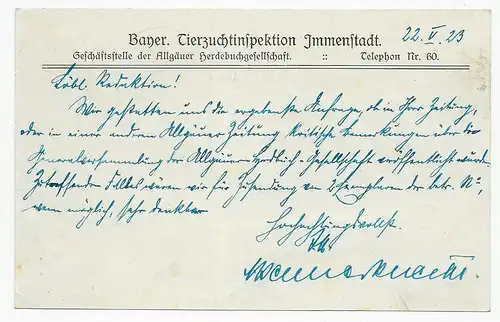 Bayer. Tierzuchtinspektion Immenstadt.
22. V. 23
Geschäftsstelle der Allgäuer Herdebuchgesellschaft. :: Telephon Nr. 60.
Löbl. Redaktion!
Wir gestatten uns die ergebenste Anfrage, ob in Ihrer Zeitung,
oder in einer anderen Allgäuer Zeitung kritische Bemerkungen über die
Generalversammlung der Allgäuer Herdbuch-Gesellschaft veröffentlicht wurden.
Zutreffenden Falles wären wir für Zusendung von 2 Exemplaren der betr. Nr.,
wenn möglich, sehr dankbar
Hochachtungsvollst.